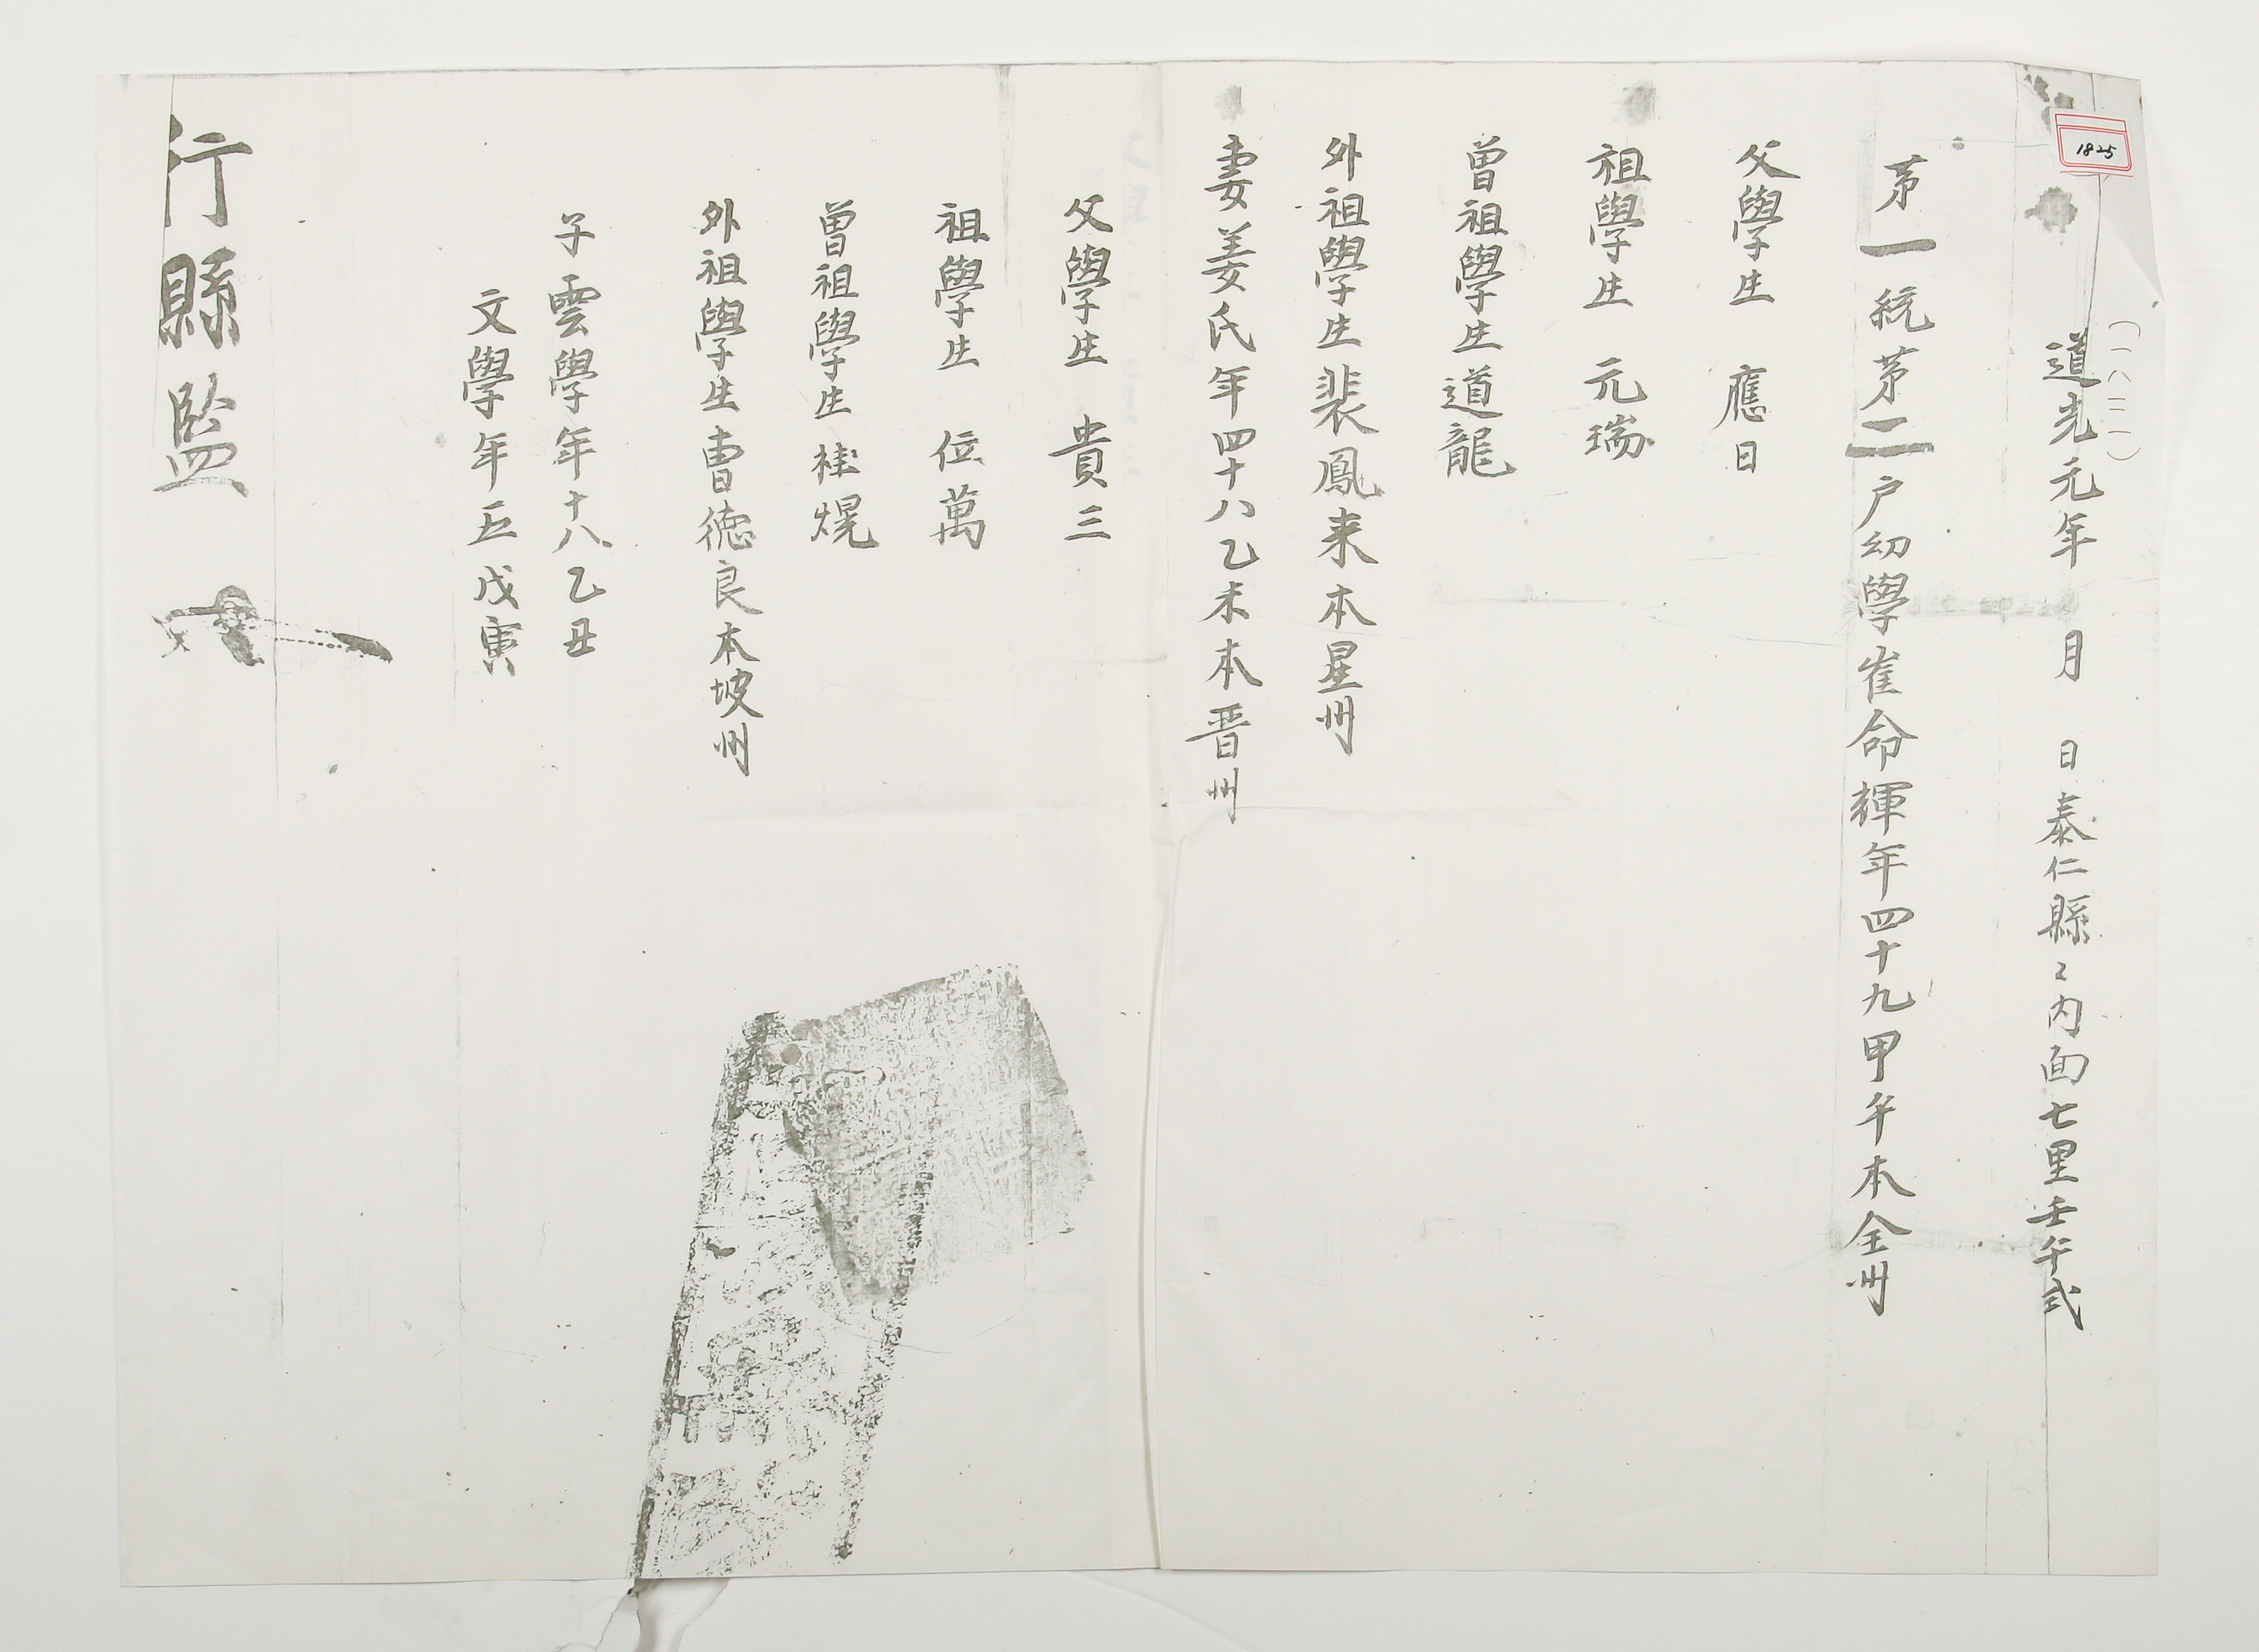 1825
(一八二一)
道光元年 月 日泰仁縣〻內面七里壬午式
茅一統茅二戶幼學崔命輝年四十九甲午本全州
父學生 應日
祖學生 元瑞
曾祖學生道龍
外祖學生裴鳳来本星州
妻姜氏年四十八乙未本晋州
父學生 貴三
祖學生 位萬
曾祖學生桂熀
外祖學生曺徳良本坡州
子雲學年十八乙丑
文學年五戊寅
行縣監